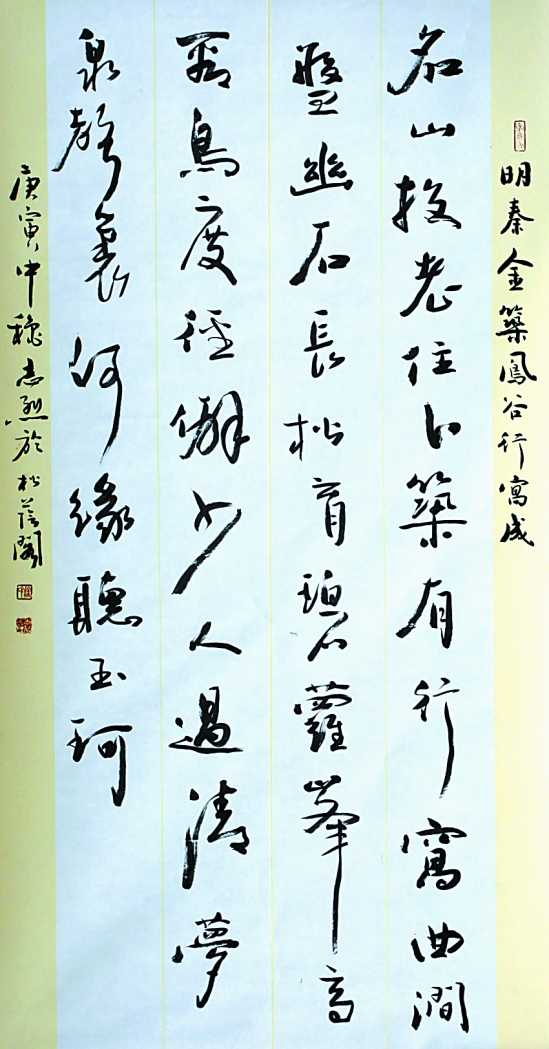 明秦金築鳳谷行窩成
名山投老住卜築有行窩曲澗
盤幽石長松育碧蘿峯高
看鳥度徑僻少人過清夢
泉聲裏何緣聽玉珂
庚寅中穐志烈於松蔭閣